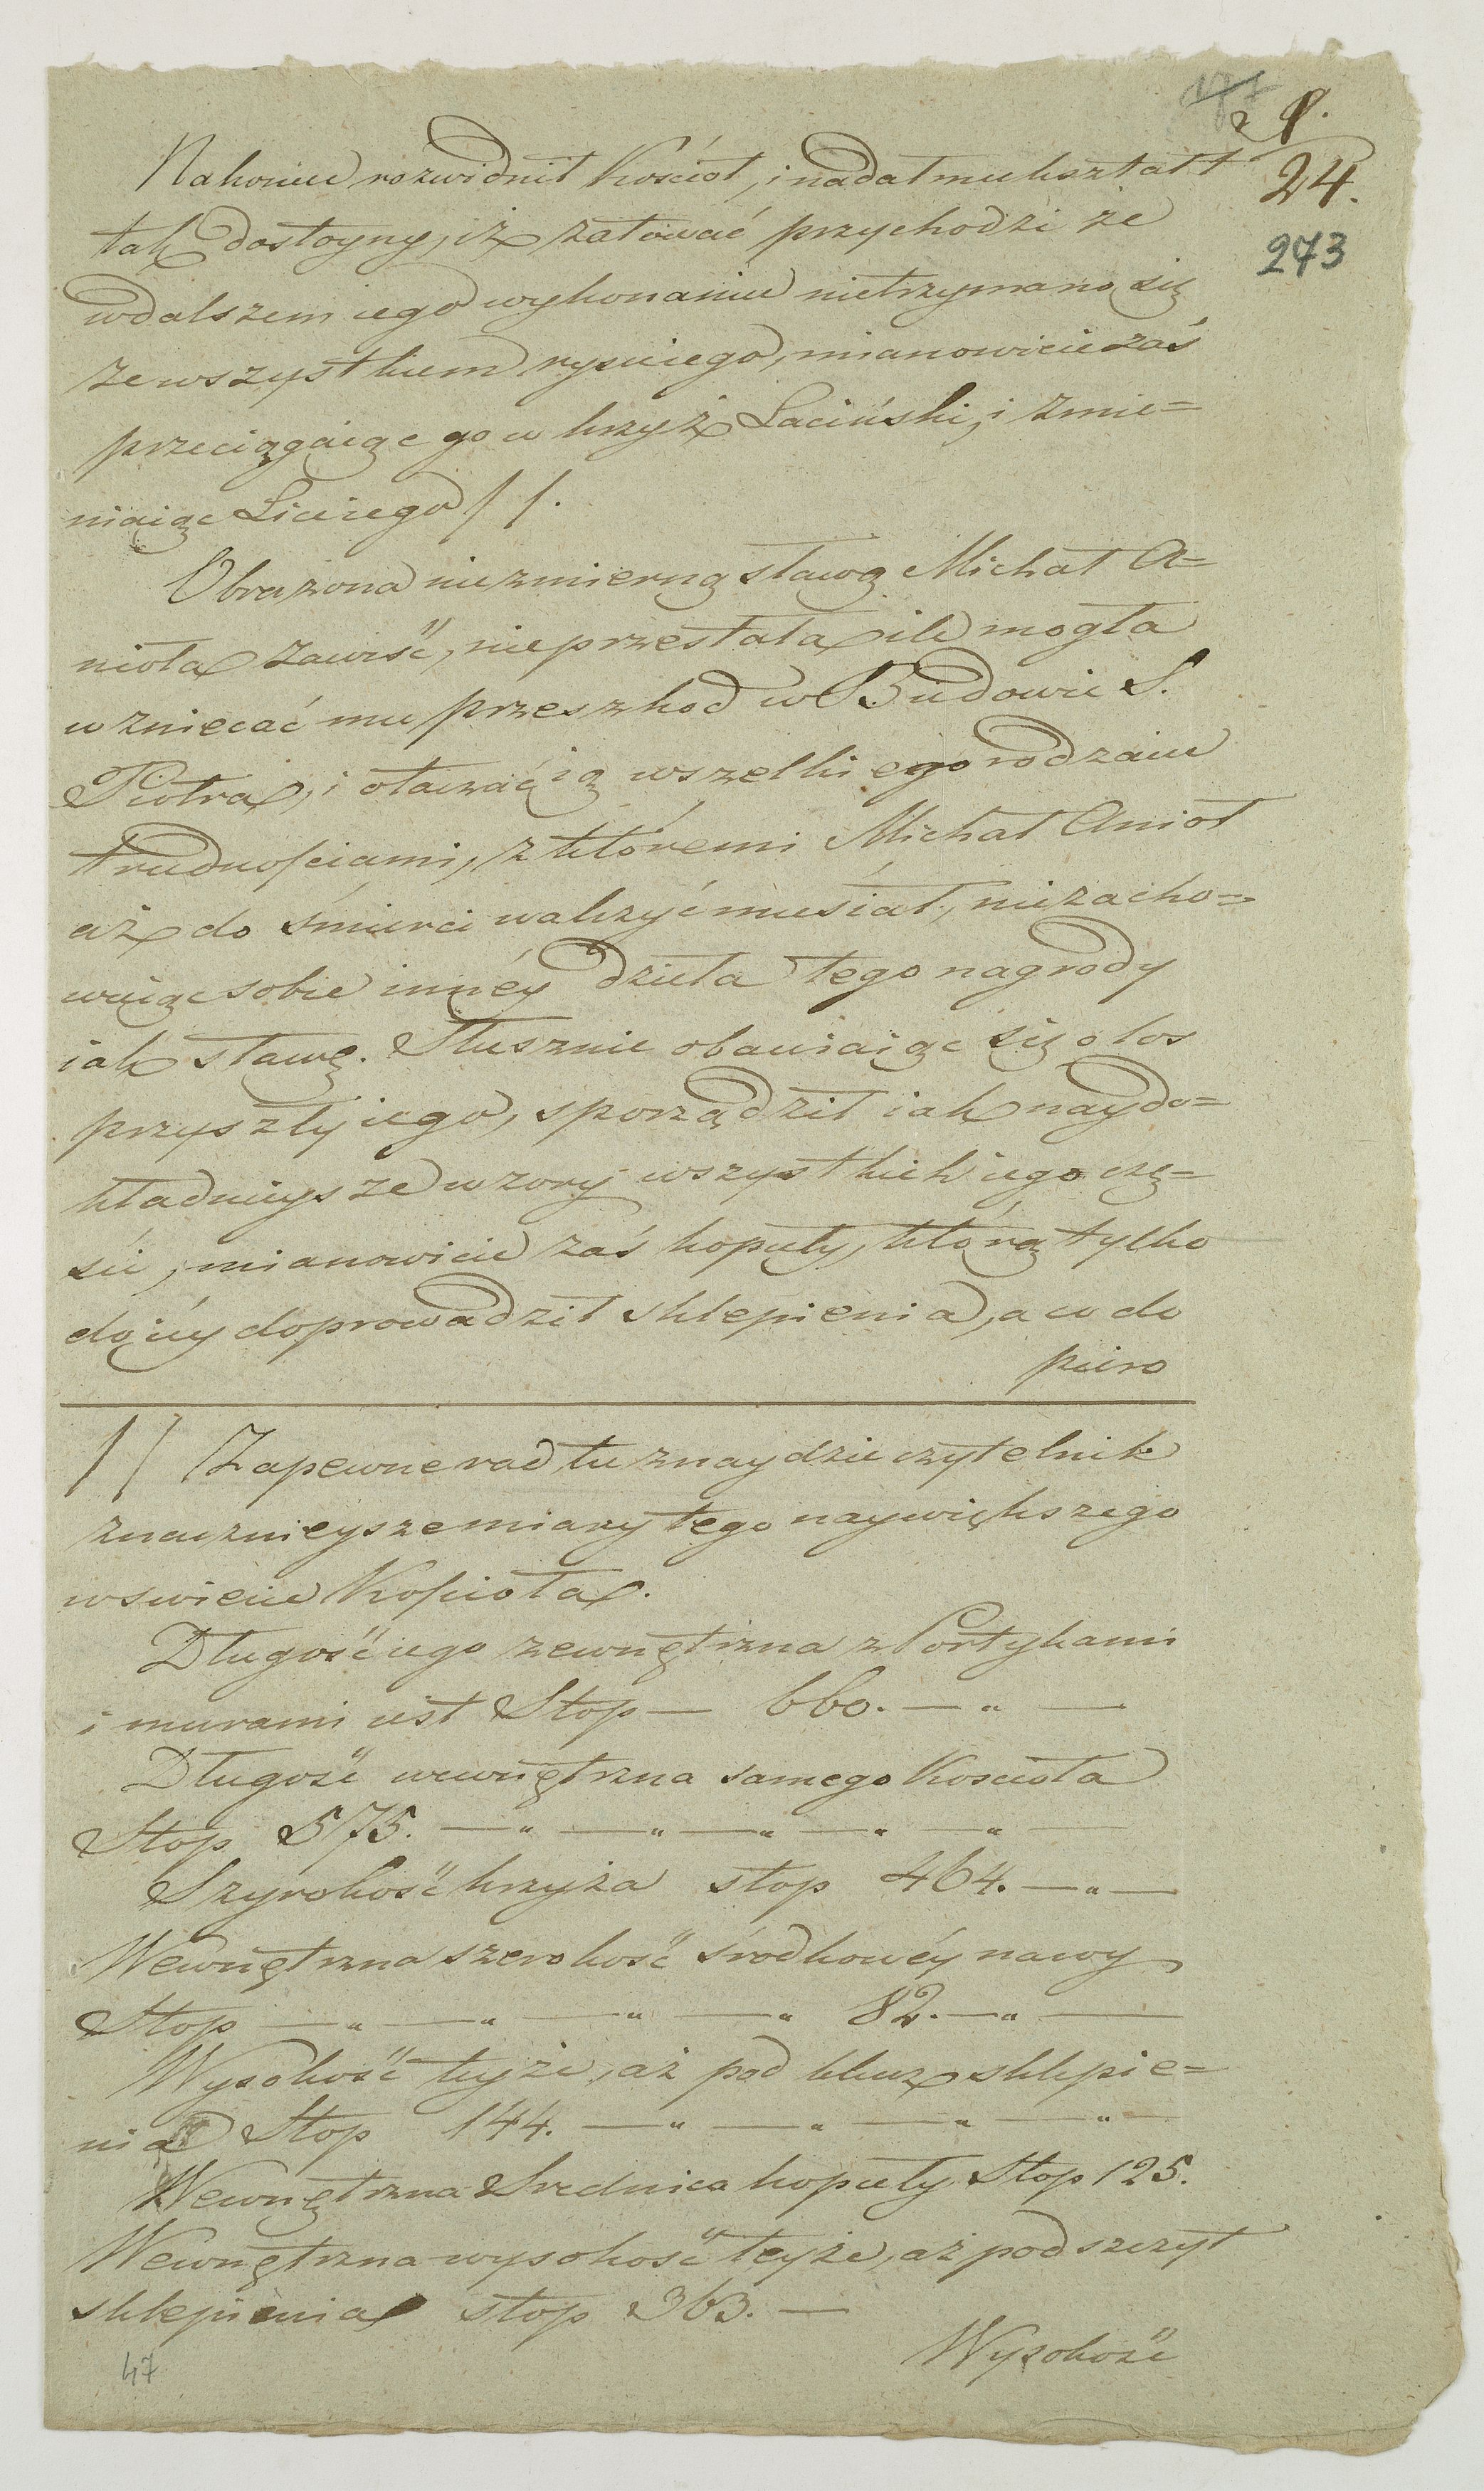 177
a 9.
24.
273
Nakoniec rozwidnił Kościoł, i nadał mu kształt
tak dostoyny, iż załować przychodzi że
w dalszem iego wykonaniu nietrzymano się
ze wszystkiem ryciny iego, mianowicie zaś
przeciągaiąc go w krzyż Łaciński, i zmie=
niaiąc Liciego / /.
Obrażona niezmierną sławą Michał A=
nioła zawiść, nieprzestała ile mogła
wzniecać mu przeszkod w Budowie S.
Piotra, i otaczać ią wszelkiego rodzaiu
trudnościami, z któremi Michał Anioł
aż do śmierci walczyć musiał, niezacho=
wuiąc sobie innéy dzieła tego nagrody
iak sławę. Słusznie obawiaiąc się o los
przyszły iego, sporządził iak naydo=
kładnieysze wzory wszystkich iego czę=
ści, mianowicie zaś kopuły, którą tylko
do iéy doprowadził sklepienia, a co do
piero
/ / Zapewne rad tu znaydzie czytelnik
znacznieysze miary tego naywiększego
w swiecie Kościoła.
Długość iego zewnętrzna z Portykami
i murami iest Stop — 660. — " —
Długość wewnętrzna samego Kościoła
Stop 575. — " — " — " — " — " —
Szyrokość krzyża stop 464. — " —
Wewnętrzna szerokość środkowéy nawy
Stop — " — " — " — " 82. — " —
Wysokość teyże, aż pod klucz sklepie=
nia Stop 144. — " — " — " — " —
Wewnętrzna Srednica kopuły Stop 125.
Wewnętrzna wysokość teyże, aż pod szczyt
sklepienia stop 363. —
Wysokość
47